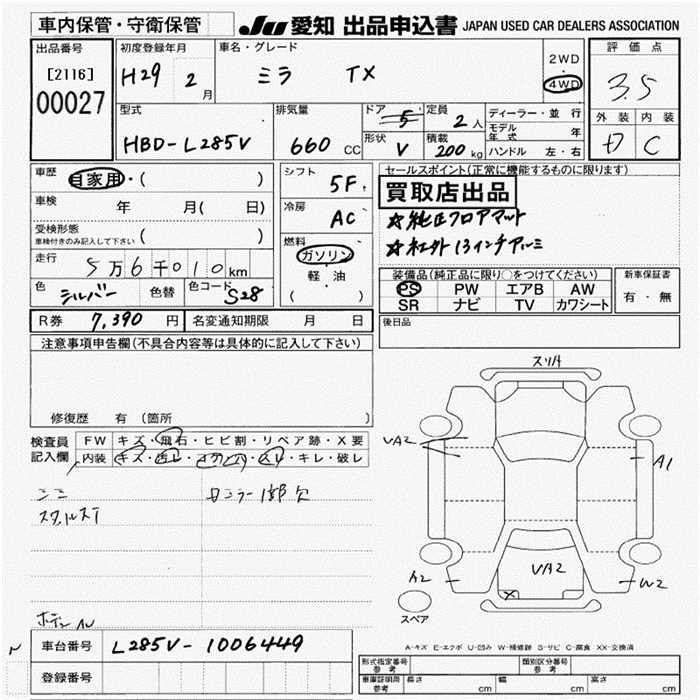 車内保管・守衛保管
JU 愛知 出品申込書 JAPAN USED CAR DEALERS ASSOCIATION
出品番号
[2116]
00027
初度登録年月
H29 2月
車名・グレード
ミラ TX
2WD
4WD
評価点
3.5
外装 内装
D C
型式
HBD-L285V
排気量
660 CC
ドア
5
形状
V
定員
2人
積載
200kg
ディーラー・並行
モデル年式 年
ハンドル 左・右
車歴
自家用・( )
車検 年 月( 日)
受検形態
車検付きのみ記入して下さい ( )
走行
5万6千010km
色 シルバー 色替 色コード S28
シフト
5F
冷房
AC
燃料
ガソリン
軽・油
( )
セールスポイント(正常に機能するものに限ります)
買取店出品
☆純正フロアマット
☆社外13インチアルミ
装備品(純正品に限り○をつけてください)
PS PW エアB AW
SR ナビ TV カワシート
新車保証書
有・無
R券 7,390円 名変通知期限 月 日
後日品
注意事項申告欄(不具合内容等は具体的に記入して下さい)
修復歴 有 (箇所
検査員記入欄
FW キズ・飛石・ヒビ割・リペア跡・X要
内装 キズ・汚レ・コゲ・スレ・キレ・破レ
スリキ
VA2
A1
VA2
A2
W2
X
スペア
車台番号 L285V-1006449
登録番号
A-キズ E-エクボ U-凹み W-補修跡 S-サビ C-腐食 XX-交換済
形式指定番号 参考
類別区分番号 参考
車庫証明用 参考 長さ cm 幅 cm 高さ cm